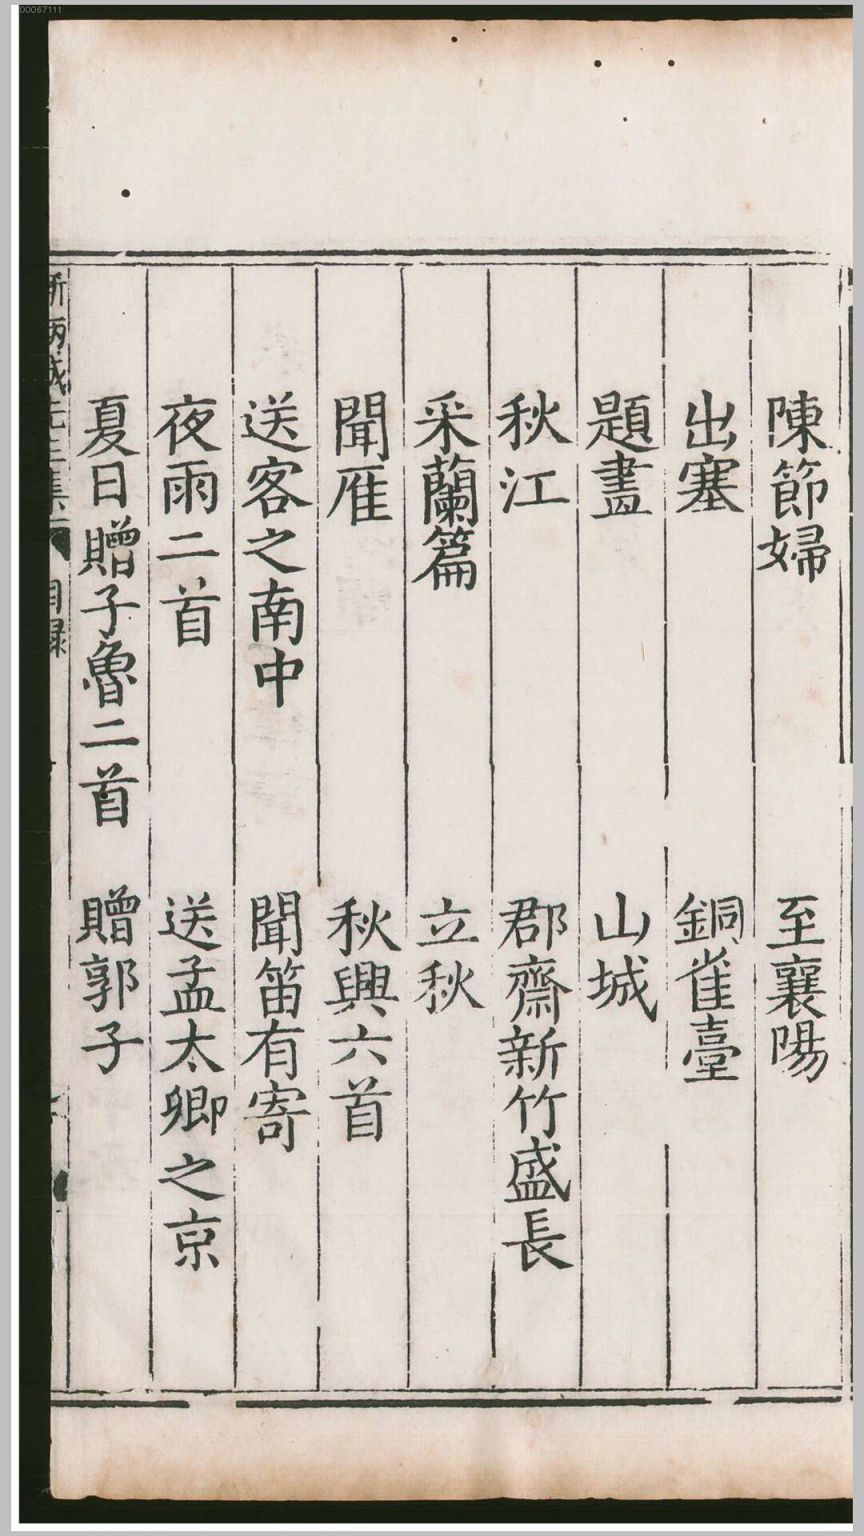 陳節婦　至襄陽
出塞　銅雀臺
題畫　山城
秋江　郡齋新竹盛長
采蘭篇　立秋
聞雁　秋興六首
送客之南中　聞笛有寄
夜雨二首　送孟太卿之京
夏日贈子魯二首　贈郭子
目録
00067111